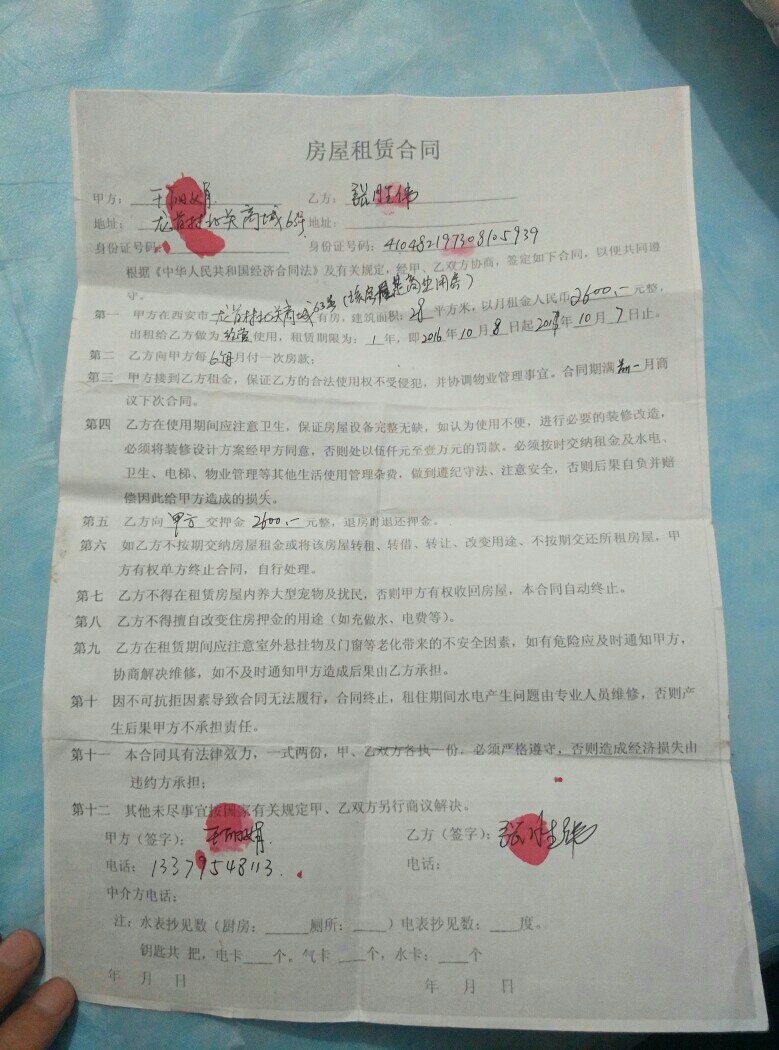 房屋租赁合同
甲方： 乙方：张胜伟
地址：龙首村北关商城6号 地址：
身份证号码： 身份证号码：410482197308105939
根据《中华人民共和国经济合同法》及有关规定，经甲、乙双方协商，签定如下合同，以便共同遵
守。
第一 甲方在西安市龙首村北关商城63号(该房是商业用房)有房，建筑面积：28平方米，以月租金人民币2600.-元整，
出租给乙方做为经营使用，租赁期限为：1年，即2016年10月8日起2017年10月7日止。
第二 乙方向甲方每6每月付一次房款；
第三 甲方接到乙方租金，保证乙方的合法使用权不受侵犯，并协调物业管理事宜。合同期满前一月商
议下次合同。
第四 乙方在使用期间应注意卫生、保证房屋设备完整无缺，如认为使用不便，进行必要的装修改造，
必须将装修设计方案经甲方同意，否则处以伍仟元至壹万元的罚款。必须按时交纳租金及水电、
卫生、电梯、物业管理等其他生活使用管理杂费，做到遵纪守法、注意安全，否则后果自负并赔
偿因此给甲方造成的损失。
第五 乙方向甲方交押金2600.-元整，退房时退还押金。
第六 如乙方不按期交纳房屋租金或将该房屋转租、转借、转让、改变用途、不按期交还所租房屋，甲
方有权单方终止合同，自行处理。
第七 乙方不得在租赁房屋内养大型宠物及扰民，否则甲方有权收回房屋，本合同自动终止。
第八 乙方不得擅自改变住房押金的用途（如充做水、电费等）。
第九 乙方在租赁期间应注意室外悬挂物及门窗等老化带来的不安全因素，如有危险应及时通知甲方，
协商解决维修，如不及时通知甲方造成后果由乙方承担。
第十 因不可抗拒因素导致合同无法履行，合同终止，租住期间水电产生问题由专业人员维修，否则产
生后果甲方不承担责任。
第十一 本合同具有法律效力，一式两份，甲、乙双方各执一份。必须严格遵守，否则造成经济损失由
违约方承担；
第十二 其他未尽事宜按国家有关规定甲、乙双方另行商议解决。
甲方（签字）： 乙方（签字）：张胜伟
电话：13379548113. 电话：
中介方电话：
注：水表抄见数（厨房：____厕所：____）电表抄见数：____度。
钥匙共 把，电卡____个。气卡____个，水卡：____个
年 月 日 年 月 日